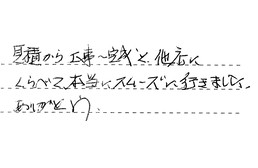 見積から工事～完成と他店に
くらべて本当にスムーズに行きました。
ありがとう。